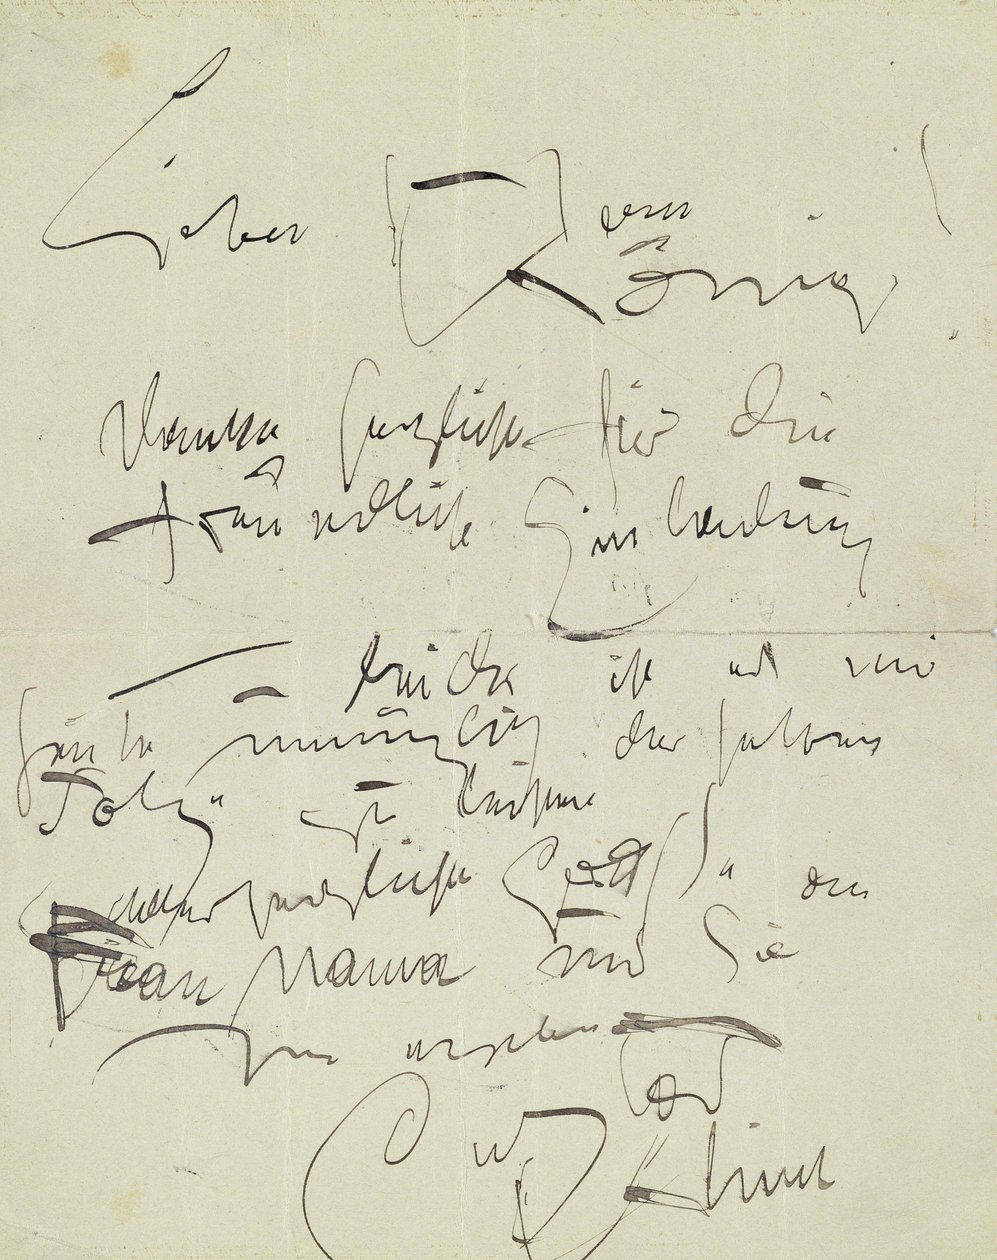 Lieber Herr
König!
Danke herzlichst für die
freundliche Einladung
leider ist es mir
heute unmöglich derselben
Folge zu leisten
herzliche Grüße an
Frau Mama und Sie
Ihr ergebenster
Gustav Klimt